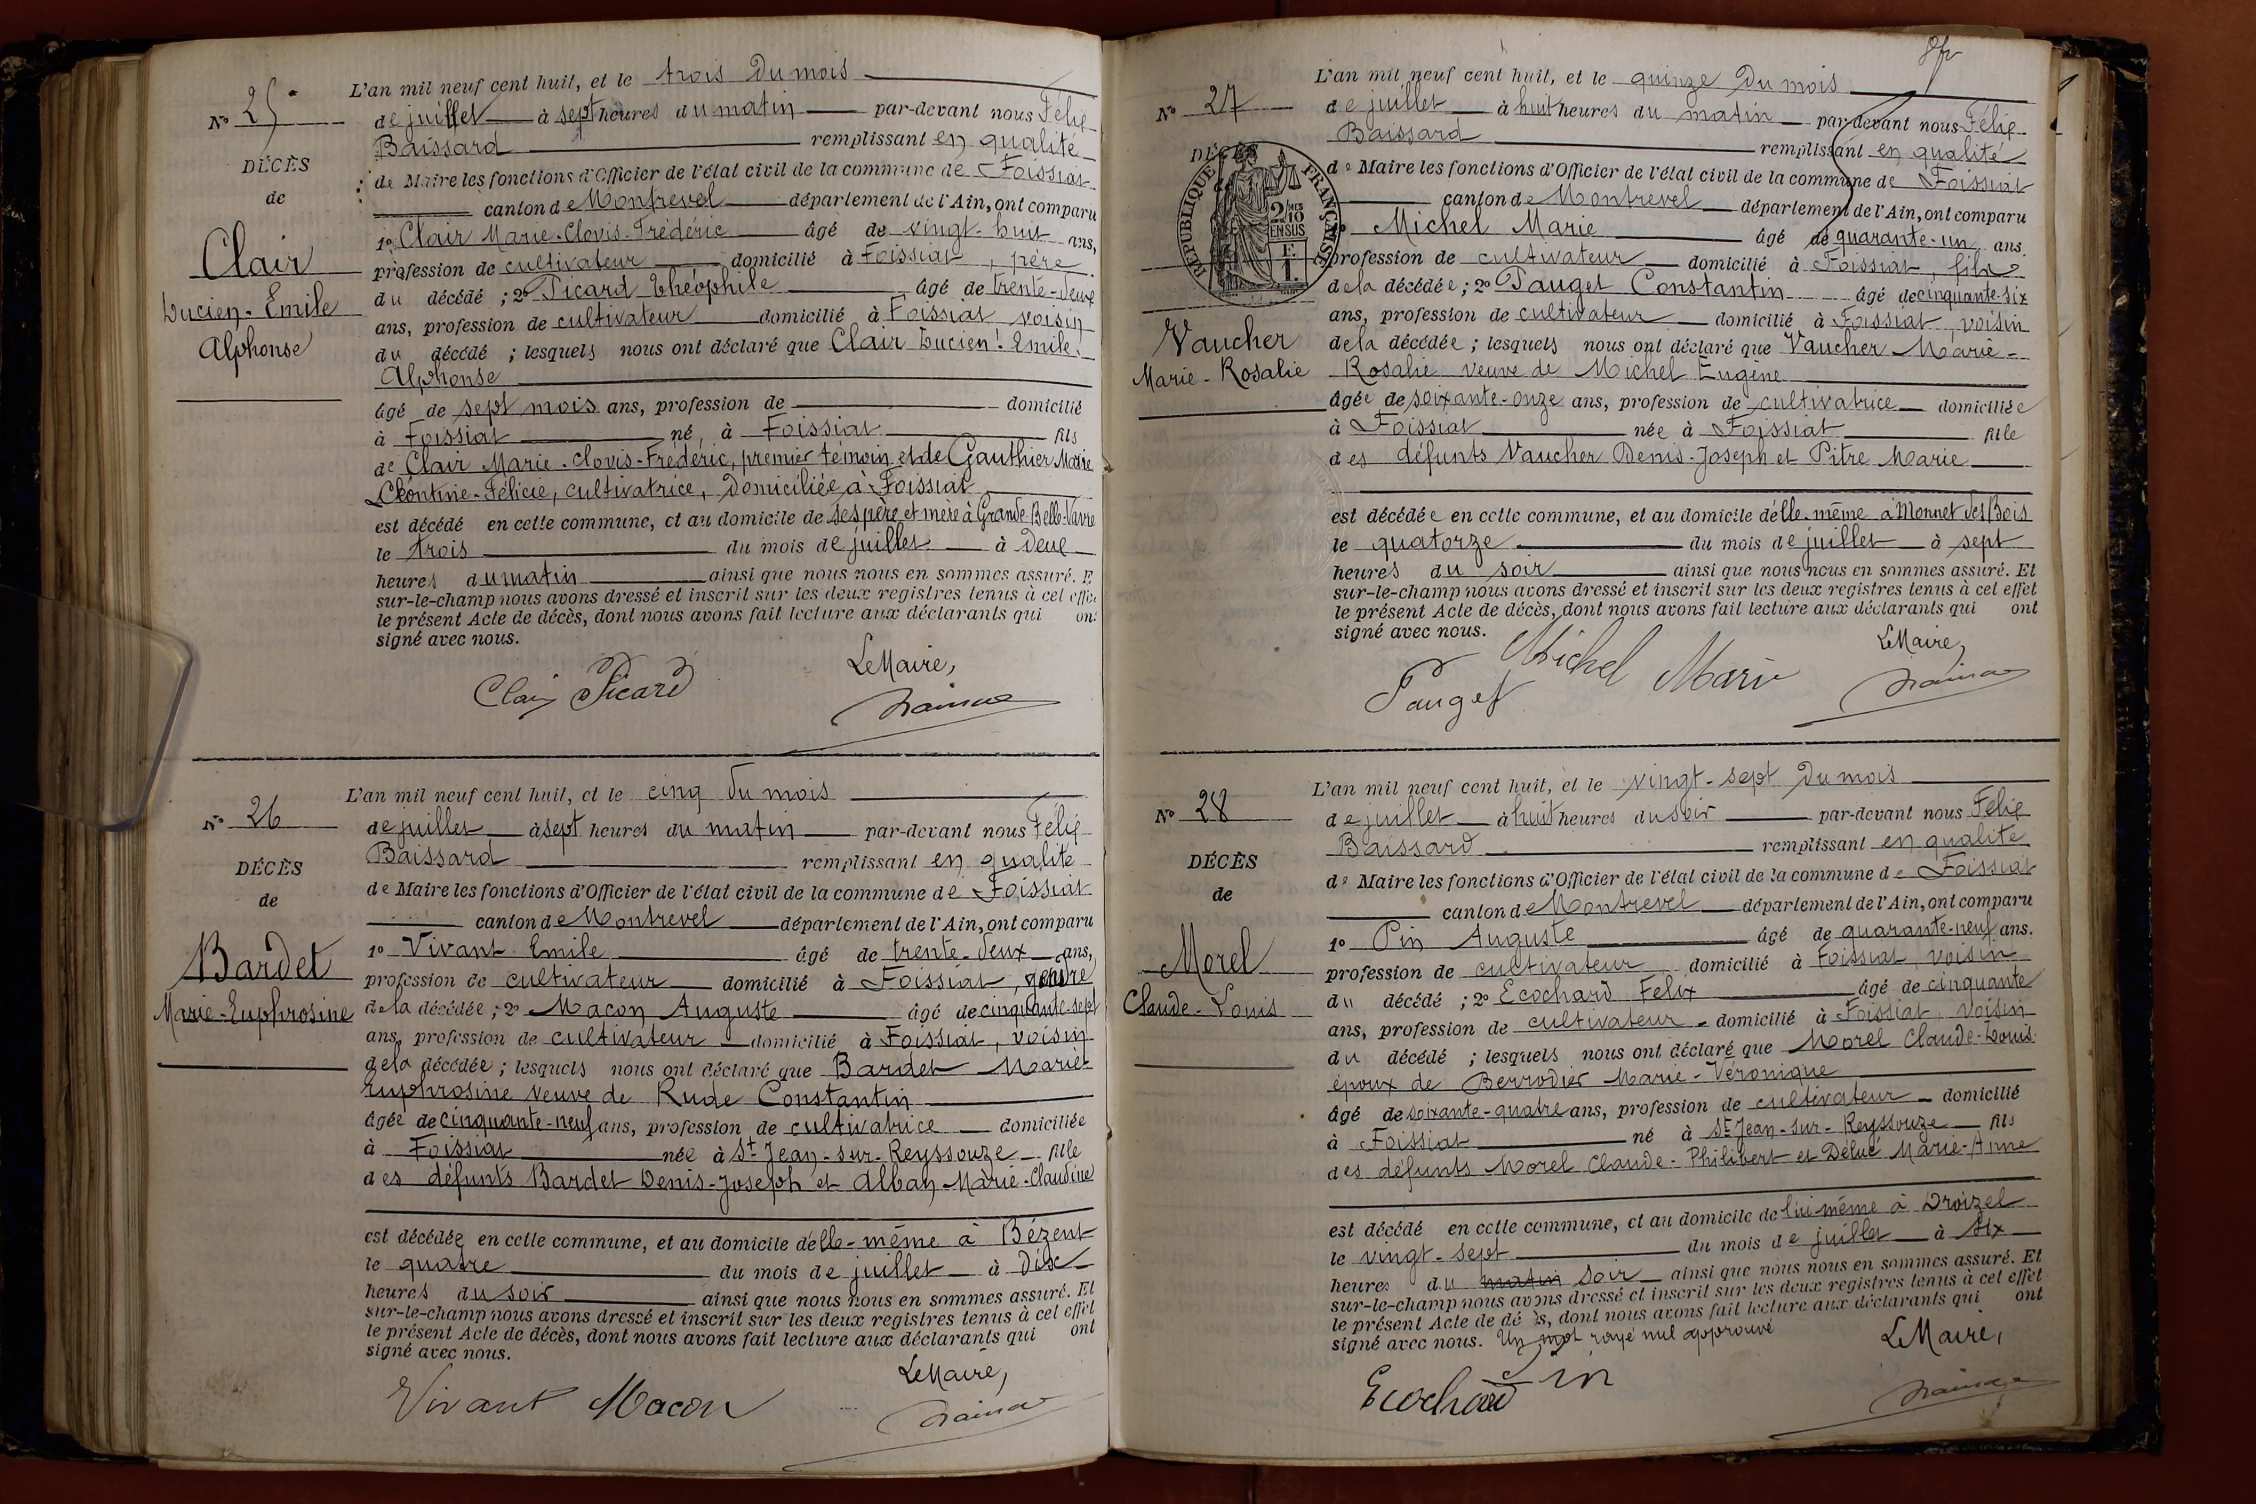 L'an mil neuf cent huit, et le trois du mois
N° 25
de juillet à sept heures du matin par-devant nous Félix
Baissard remplissant en qualité
DÉCÈS
de Maire les fonctions d'Officier de l'état civil de la commune de Foissiat
de
canton de Montrevel département de l'Ain, ont comparu
1° Clair Marie-Clovis-Frédéric âgé de vingt-huit ans,
Clair
profession de cultivateur domicilié à Foissiat, père
du décédé ; 2° Picard Théophile âgé de trente-deux
Lucien-Emile
ans, profession de cultivateur domicilié à Foissiat voisin
Alphonse
du décédé ; lesquels nous ont déclaré que Clair Lucien-Emile-
Alphonse
âgé de sept mois ans, profession de domicilié
à Foissiat né à Foissiat fils
de Clair Marie-Clovis-Frédéric, premier témoin et de Gauthier Marie
Léontine-Félicie, cultivatrice, domiciliée à Foissiat
est décédé en cette commune, et au domicile de ses père et mère à Grande Belle-Vavre
le trois du mois de juillet à deux
heures du matin ainsi que nous nous en sommes assuré. E
sur-le-champ nous avons dressé et inscrit sur les deux registres tenus à cet effet
le présent Acte de décès, dont nous avons fait lecture aux déclarants qui ont
signé avec nous.
Le Maire,
Clair Picard
L'an mil neuf cent huit, et le cinq du mois
N° 26
de juillet à sept heures du matin par-devant nous Félix
Baissard remplissant en qualité
DÉCÈS
de Maire les fonctions d'Officier de l'état civil de la commune de Foissiat
de
canton de Montrevel département de l'Ain, ont comparu
1° Vivant Emile âgé de trente-deux ans,
Bardet
profession de cultivateur domicilié à Foissiat, gendre
Marie-Euphrosine
de la décédée ; 2° Macon Auguste âgé de cinquante-sept
ans, profession de cultivateur domicilié à Foissiat, voisin
de la décédée ; lesquels nous ont déclaré que Bardet Marie-
Euphrosine veuve de Rude Constantin
âgée de cinquante-neuf ans, profession de cultivatrice domiciliée
à Foissiat née à St Jean-sur-Reyssouze fille
des défunts Bardet Denis-Joseph et Alban Marie-Claudine
est décédée en cette commune, et au domicile d'elle-même à Bézent
le quatre du mois de juillet à dix
heures du soir ainsi que nous nous en sommes assuré. Et
sur-le-champ nous avons dressé et inscrit sur les deux registres tenus à cet effet
le présent Acte de décès, dont nous avons fait lecture aux déclarants qui ont
signé avec nous.
Le Maire,
Vivant Macon
L'an mil neuf cent huit, et le quinze du mois
N° 27
de juillet à huit heures du matin par-devant nous Félix
Baissard remplissant en qualité
DÉCÈS
RÉPUBLIQUE FRANÇAISE
2/10 EN SUS
de Maire les fonctions d'Officier de l'état civil de la commune de Foissiat
canton de Montrevel département de l'Ain, ont comparu
Michel Marie âgé de quarante-un ans
profession de cultivateur domicilié à Foissiat, fils
de la décédée ; 2° Pauget Constantin âgé de cinquante-six
ans, profession de cultivateur domicilié à Foissiat, voisin
Vaucher
de la décédée ; lesquels nous ont déclaré que Vaucher Marie-
Marie-Rosalie
Rosalie veuve de Michel Eugène
âgée de soixante-onze ans, profession de cultivatrice domiciliée
à Foissiat née à Foissiat fille
des défunts Vaucher Denis-Joseph et Pitre Marie
est décédée en cette commune, et au domicile d'elle-même à Monnet des Bois
le quatorze du mois de juillet à sept
heures du soir ainsi que nous nous en sommes assuré. Et
sur-le-champ nous avons dressé et inscrit sur les deux registres tenus à cet effet
le présent Acte de décès, dont nous avons fait lecture aux déclarants qui ont
signé avec nous.
Le Maire,
Michel Marie
Pauget
L'an mil neuf cent huit, et le vingt-sept du mois
N° 28
de juillet à huit heures du soir par-devant nous Félix
Baissard remplissant en qualité
DÉCÈS
de Maire les fonctions d'Officier de l'état civil de la commune de Foissiat
de
canton de Montrevel département de l'Ain, ont comparu
1° Pin Auguste âgé de quarante-neuf ans.
Morel
profession de cultivateur domicilié à Foissiat, voisin
Claude-Louis
du décédé ; 2° Ecochard Félix âgé de cinquante
ans, profession de cultivateur domicilié à Foissiat, voisin
du décédé ; lesquels nous ont déclaré que Morel Claude-Louis
époux de Berrodier Marie-Véronique
âgé de soixante-quatre ans, profession de cultivateur domicilié
à Foissiat né à St Jean-sur-Reyssouze fils
des défunts Morel Claude-Philibert et Déluc Marie-Anne
est décédé en cette commune, et au domicile de lui même à Droizel
le vingt-sept du mois de juillet à six
heures du matin soir ainsi que nous nous en sommes assuré. Et
sur-le-champ nous avons dressé et inscrit sur les deux registres tenus à cet effet
le présent Acte de décès, dont nous avons fait lecture aux déclarants qui ont
signé avec nous. Un mot rayé nul approuvé
Le Maire,
Ecochard Pin